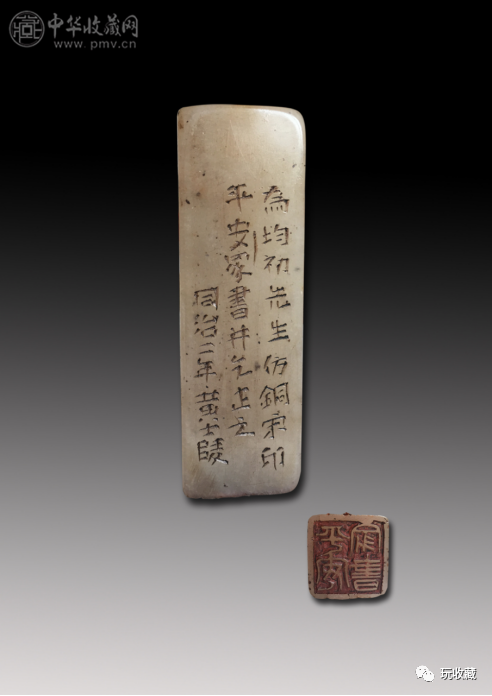 中华收藏网
www.pmv.cn
為均初先生仿銅印
平安家書并乞正之
同治二年黃士陵
家書
平安
玩收藏